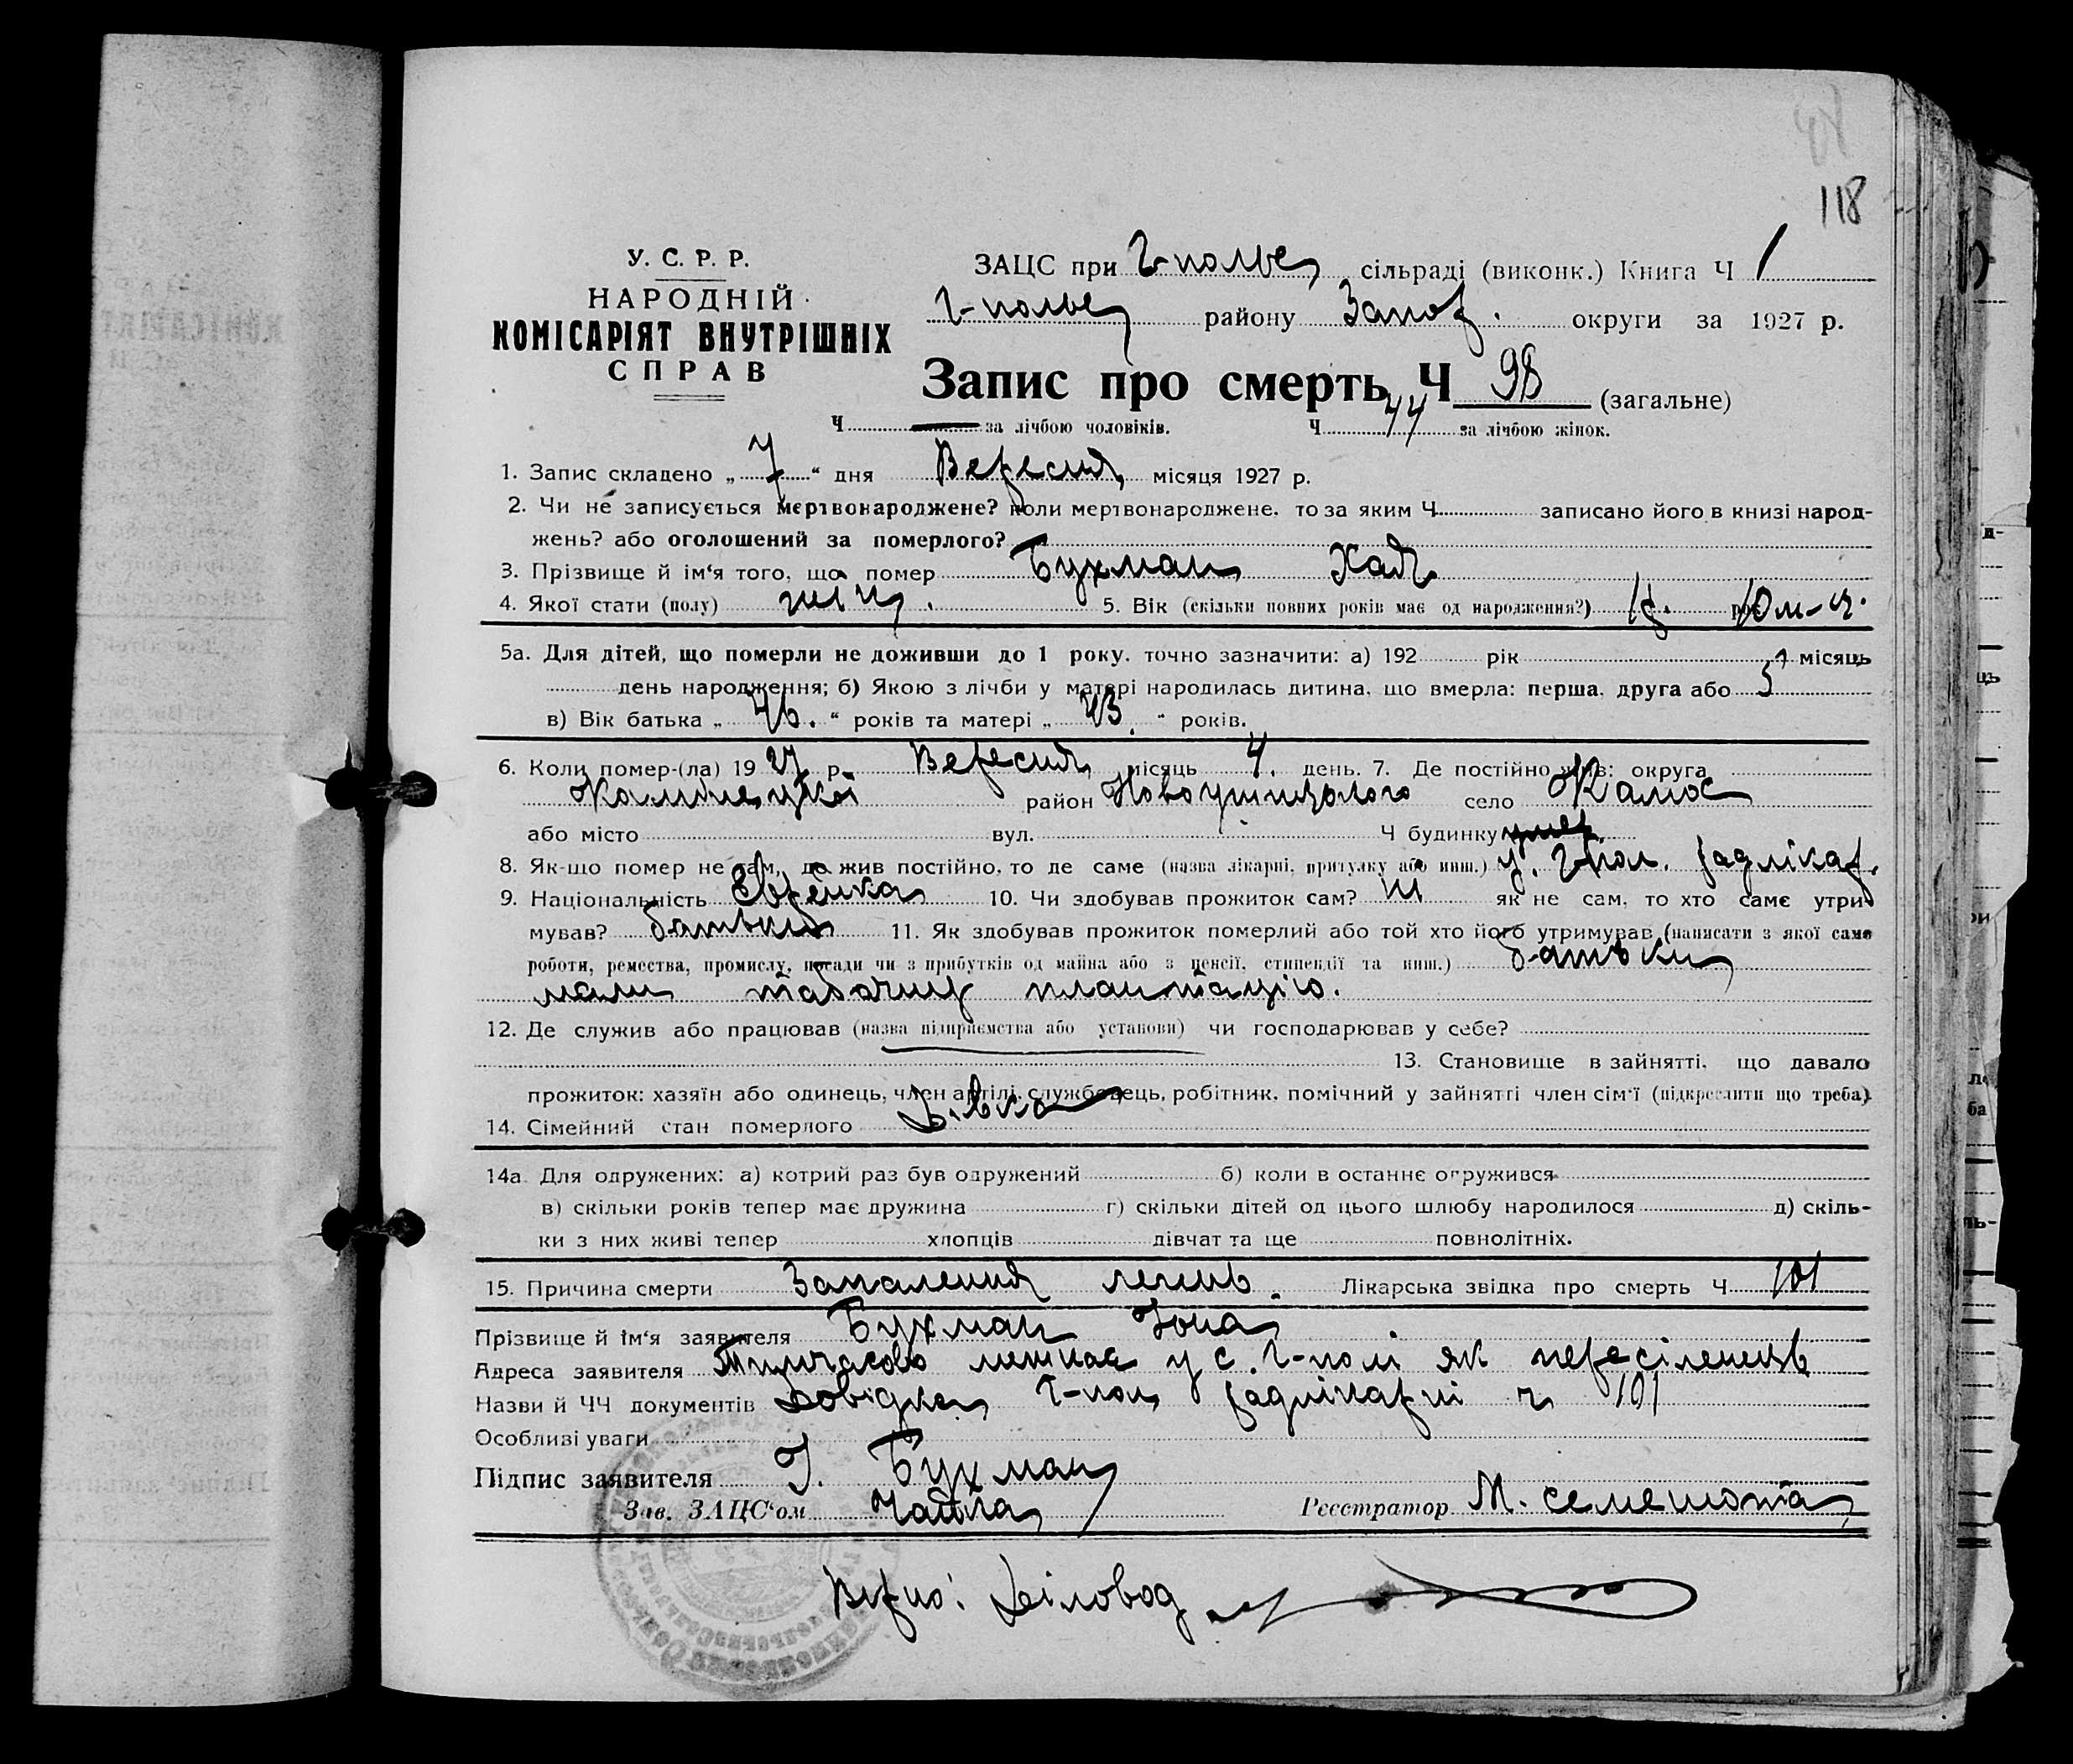 118
У. С. Р. Р.
НАРОДНІЙ
КОМІСАРІЯТ ВНУТРІШНІХ
СПРАВ
ЗАЦС при Г-полье сільраді (виконк.) Книга Ч 1
Г-полье району Запор. округи за 1927 р.
Запис про смерть Ч 98 (загальне)
Ч за лічбою чоловіків. Ч 44 за лічбою жінок.
1. Запис складено „ 7 “ дня Вересня місяця 1927 р.
2. Чи не записується мертвонароджене? коли мертвонароджене, то за яким Ч записано його в книзі народ-
жень? або оголошений за померлого?
3. Прізвище й ім‘я того, що помер Бухман Хая
4. Якої стати (полу) жін. 5. Вік (скільки повних років має од народження?) 1 р. рок 10 м-ц.
5а. Для дітей, що померли не доживши до 1 року, точно зазначити: а) 192 рік місяць
день народження; б) Якою з лічби у матері народилась дитина, що вмерла: перша, друга або 5
в) Вік батька „ 46. “ років та матері „ 43. “ років.
6. Коли помер-(ла) 19 27 р. Вересня місяць 4. день. 7. Де постійно жив: округа
Камінецької район Новоушицького село Калюс
або місто вул. Ч будинку
8. Як-що помер не там, де жив постійно, то де саме (назва лікарні, притулку або инш.) у Г-пол. радлікар.
9. Національність Єврейка 10. Чи здобував прожиток сам? ні як не сам, то хто саме утри-
мував? батьки 11. Як здобував прожиток померлий або той хто його утримував (написати з якої саме
роботи, ремества, промислу, посади чи з прибутків од майна або з пенсії, стипендії та инш.) батьки
мали табачну плантацію.
12. Де служив або працював (назва підприємства або установи) чи господарював у себе?
13. Становище в зайнятті, що давало
прожиток: хазяїн або одинець, член артілі, службовець, робітник, помічний у зайнятті член сім‘ї (підкреслити що треба)
14. Сімейний стан померлого Дівка
14а. Для одружених: а) котрий раз був одружений б) коли в останнє одружився
в) скільки років тепер має дружина г) скільки дітей од цього шлюбу народилося д) скіль-
ки з них живі тепер хлопців дівчат та ще повнолітніх.
15. Причина смерти Запалення легень. Лікарська звідка про смерть Ч 101
Прізвище й ім‘я заявителя Бухман Іона
Адреса заявителя Тимчасово мешкає у с. Г-полі як пересіленець
Назви й ЧЧ документів Довідка Г-пол радлікарні ч 101
Особливі уваги
Підпис заявителя Г. Бухман
Зав. ЗАЦС‘ом Чайка Реєстратор М. Семенота
Вірно: Діловод